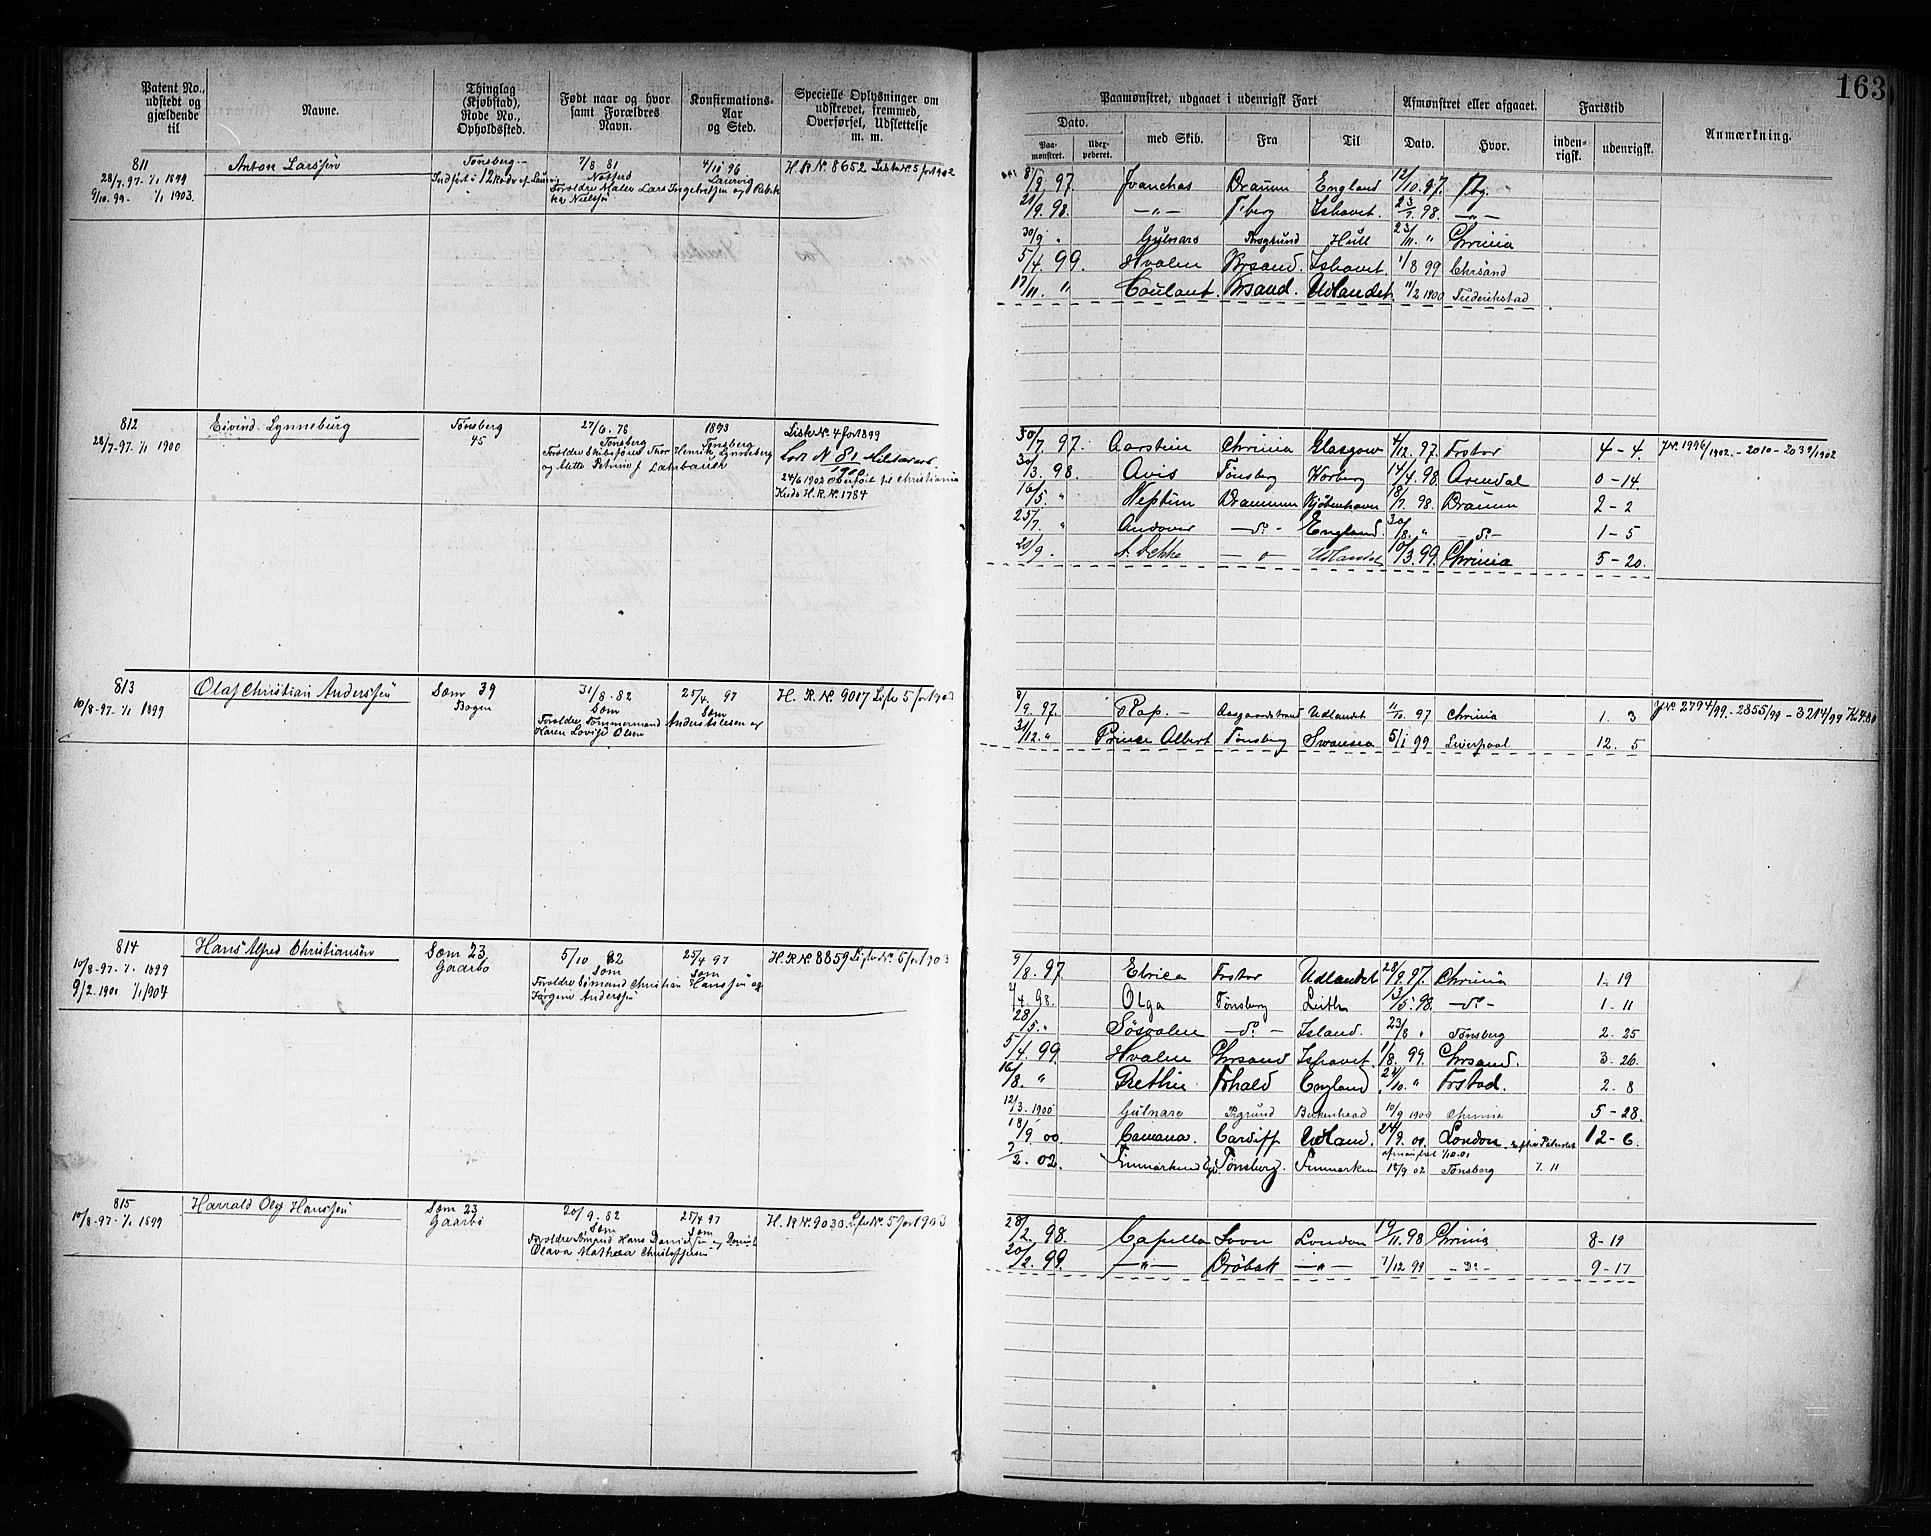 163
Patent No., udstedt og gjældende til
Navne.
Thinglag (Kjøbstad), Rode No., Opholdssted.
Født naar og hvor samt Forældres Navn.
Konfirmations-Aar og Sted.
Specielle Oplysninger om udskrevet, fremmed, Overførsel, Udslettelse m. m.
Paamønstret, udgaaet i udenrigsk Fart
Afmønstret eller afgaaet.
Fartstid
Anmærkning.
Dato.
Paa-mønstret.
med Skib.
Fra
Til
Dato.
Hvor.
inden-rigsk.
udenrigsk.
811
28/7. 97. 1/1 1899
9/10. 99. 1/1 1903.
Anton Larssen
Tønsberg
7/8 81
Nøtterø
4/10 96
Laurvig
H. R. No. 8652 Liste No. 5 for 1902
8/9. 97. Ivanchas Dramm England 12/10. 97. Tbg.
21/9. 98. —"— T'berg Ishavet. 98. —"—
30/9 " Gulnare Porsgrund Hull 23/11. " Chrinia
5/4. 99. Hvalen Ishavet. 1/8 99 Chrsand
17/11. " Coulant. Udlandet 1900 Frederikstad
812
28/7-97. 1/1 1900
Eivind Lynneburg
Tønsberg
45
27/6. 76
Tønsberg
1893
Tønsberg
Forældre Skibsfører Thor Henrik Lynneberg
og Mette Petrine f.
Liste No. 4 for 1899
24/6 1902 Overført til Christiania
Kreds H. R. No. 1784
30/7. 97. Chrinia Glasgow 4/12. 97. Frstad 4 - 4. J. No. 1996/1902. - 2010 - 2039/1902
30/3. 98. Avis Tønsberg Worberg 14/4. 98. Arendal 0 - 14.
16/5. " Neptun Drammen Kjøbenhavn 18/7. 98. Dramm 2 - 2
25/7. " Andover —do— England 30/8. " —do— 1 - 5
Udlandet 10/3. 99. Chrinia 5 - 20.
813
10/8-97. 1/1 1899
Olaf Christian Anderssen
Sæm 39
Bogen
31/8. 82
Sæm
25/4. 97
Sæm
Forældre Tømmermand Anders Olesen og
Karen Lovise Olsen
H. R. No. 9017 Liste 5 for 1903
8/9. 97. Rap. Aasgaardstrand Udlandet 11/10. 97 Chrinia 1. 3 J. No. 2794/99. - 2855/99 - 3214/99
31/12. " Prince Albert Tønsberg Swansea 5/1 99 Liverpool 12. 5
814
10/8-97. 1/1. 1899
9/2. 1901 1/1 1904
Hans Alfred Christiansen
Sæm 23
Gaarbo
5/10 82
Sæm
25/4 97
Sæm
Forældre Sømand Christian Hanssen og
Jørgine Anderssen
H. R. No. 8859 Liste No. 5 for 1903
9/8. 97. Ebrica Frstad Udlandet 28/9. 97. Chrinia 1. 19
98. Olga Tønsberg Leith 13/5. 98. —do— 1 - 11
28/5. " —do— Island. 23/8 " Tønsberg 2. 25
5/4. 99. Hvalen Chrsand Ishavet. 1/8. 99. Chrsand. 3 - 26.
16/8. " Grethe Frhald England 24/10. " Frstad. 2 - 8
12/3. 1900 Gulnare Pgrund Birkenhead 10/9 1900 Chrinia 5 - 28.
18/9. 00. Camana. Cardiff Udland. London 12 - 6.
02. Finmarken Tønsberg. Finmarken 18/9 02 Tønsberg 7. 11
815
10/8-97. 1/1 1899
Harrald Olaf Hanssen
Sæm 23
Gaarbo
20/9. 82
Sæm
25/4 97
Sæm
Forældre Sømand Hans Danielsen og
Olava Mathea Christoffersen
H. R. No. 9030. Liste No. 5 for 1903
28/2. 98. Capella London 19/11. 98 Chrinia 8 - 19
20/2. 99. —"— Drøbak —"— 7/12 99 —do— 9 - 17